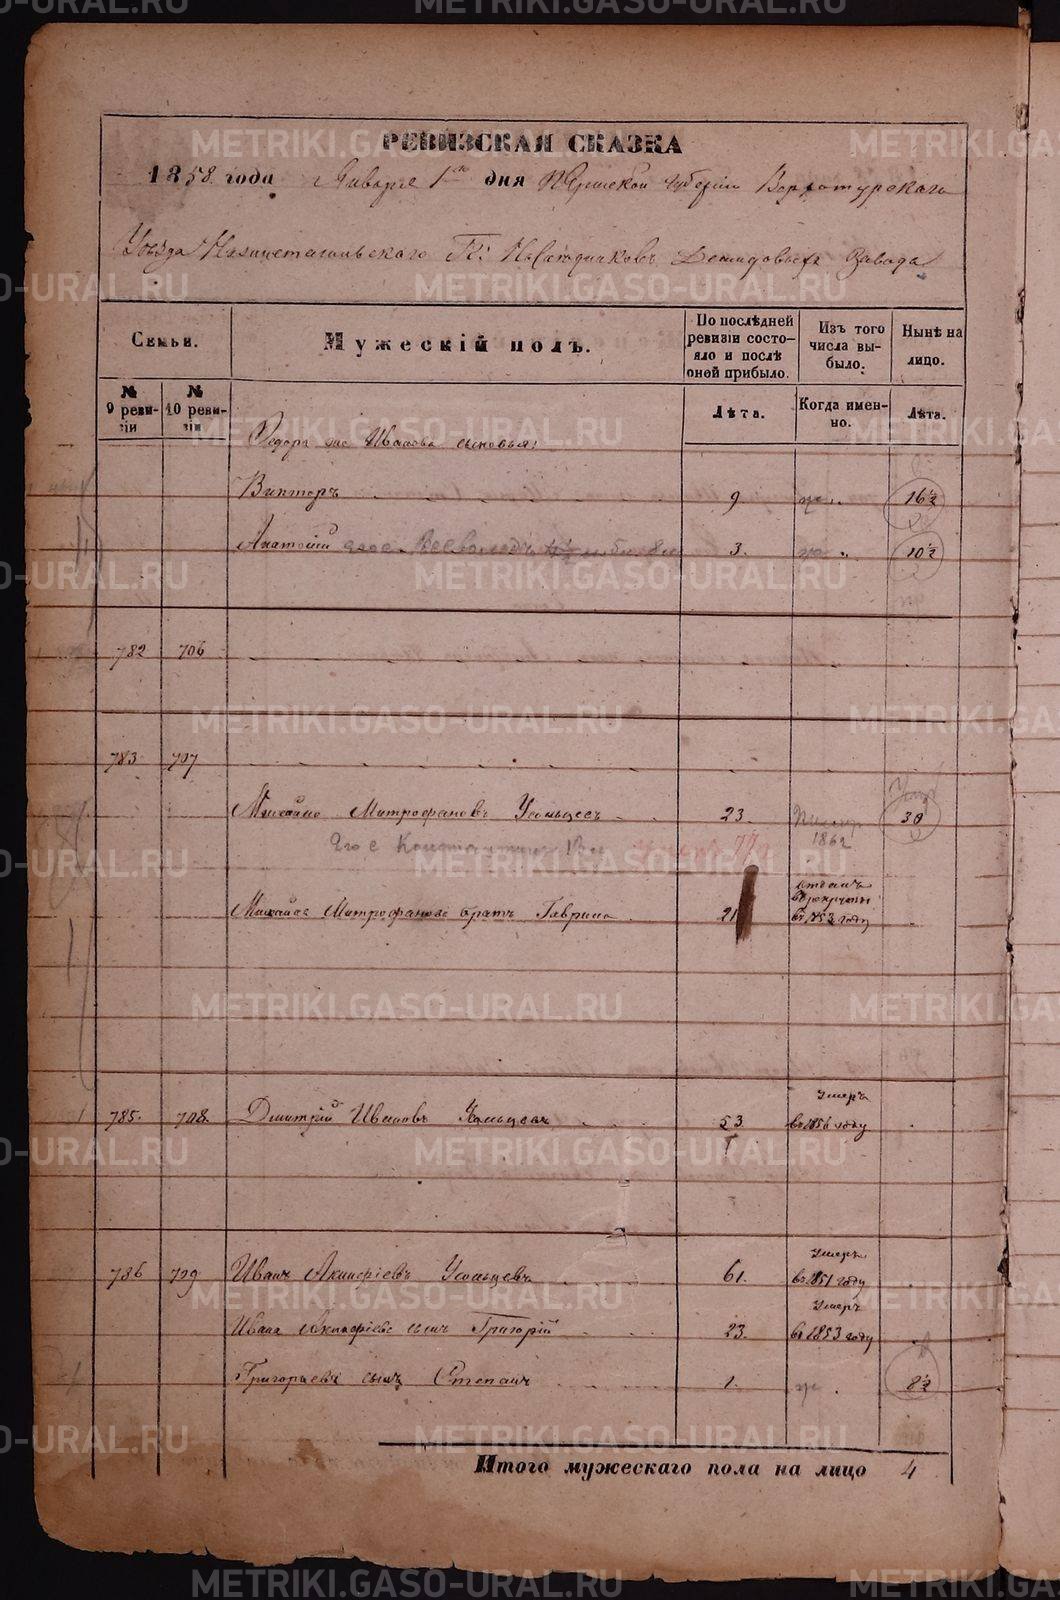 РЕВИЗСКАЯ СКАЗКА
1858 года Января 1го дня Пермской губернiи Верхотурскаго
Уѣзда Нижнетагильскаго Гг: Наслѣдниковъ Демидовыхъ Завода
Семьи.
Мужескiй полъ.
По послѣдней ревизiи состояло и послѣ оней прибыло.
Изъ того числа выбыло.
Нынѣ на лицо.
№ 9 ревизiи
№ 10 ревизiи
Лѣта.
Когда именно.
Лѣта.
Ѳедора Иванова сыновья:
Викторъ 9 16½
Анатолiй Всеволодъ 3. 10½
782 706
783 707
Михайло Митрофановъ Усольцевъ 23. 1862 30
Его с Константинъ
Михайла Митрофанова братъ Гаврило 21 отданъ в рекруты въ 1853 году
785. 708. Дмитрiй Ивановъ Усольцевъ 53 умеръ въ 1856 году
786 709 Иванъ Акинфiевъ Усольцевъ 61. умеръ въ 1851 году
Ивана Акинфiева сынъ Григорiй 23. умеръ въ 1853 году
Григорьевъ сынъ Степанъ 1. 8½
Итого мужескаго пола на лицо 4
METRIKI.GASO-URAL.RU